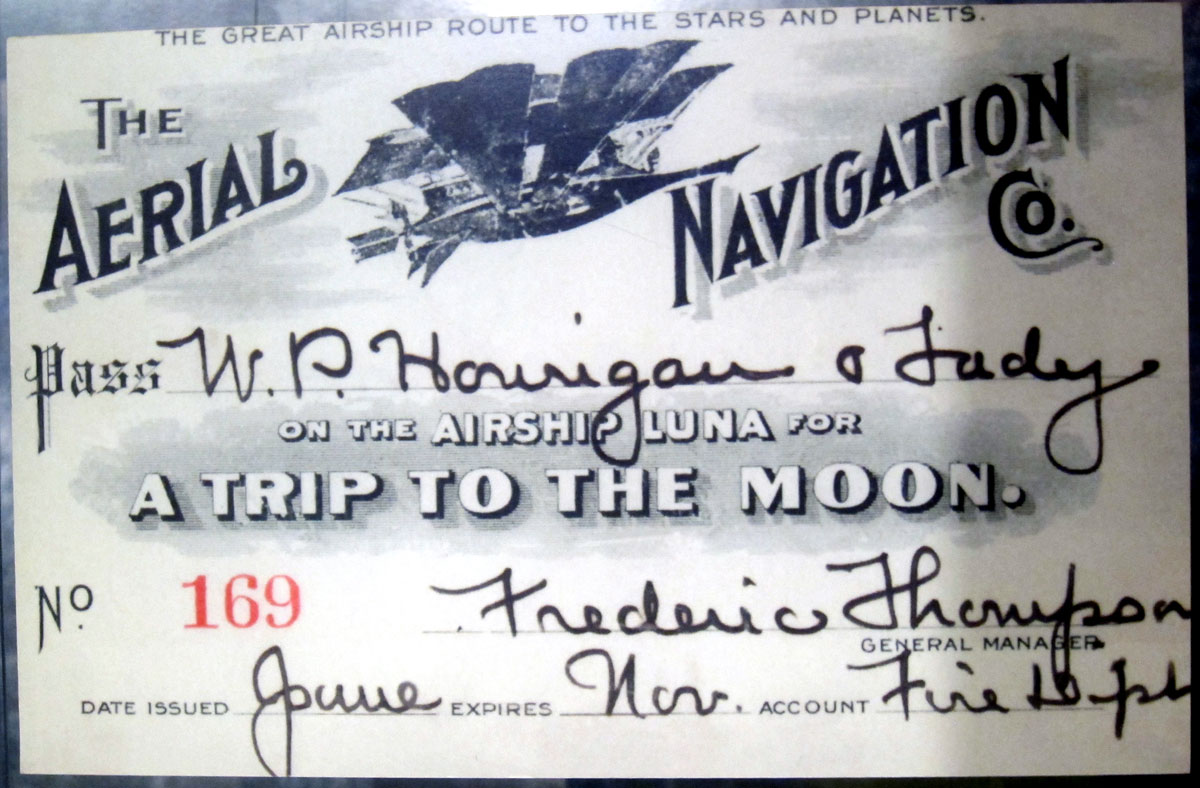 THE GREAT AIRSHIP ROUTE TO THE STARS AND PLANETS.
THE AERIAL NAVIGATION CO.
Pass W. P. Hourigan & Lady
ON THE AIRSHIP LUNA FOR
A TRIP TO THE MOON.
No. 169 Frederic Thompson
GENERAL MANAGER
DATE ISSUED June EXPIRES Nov. ACCOUNT Fire Dept